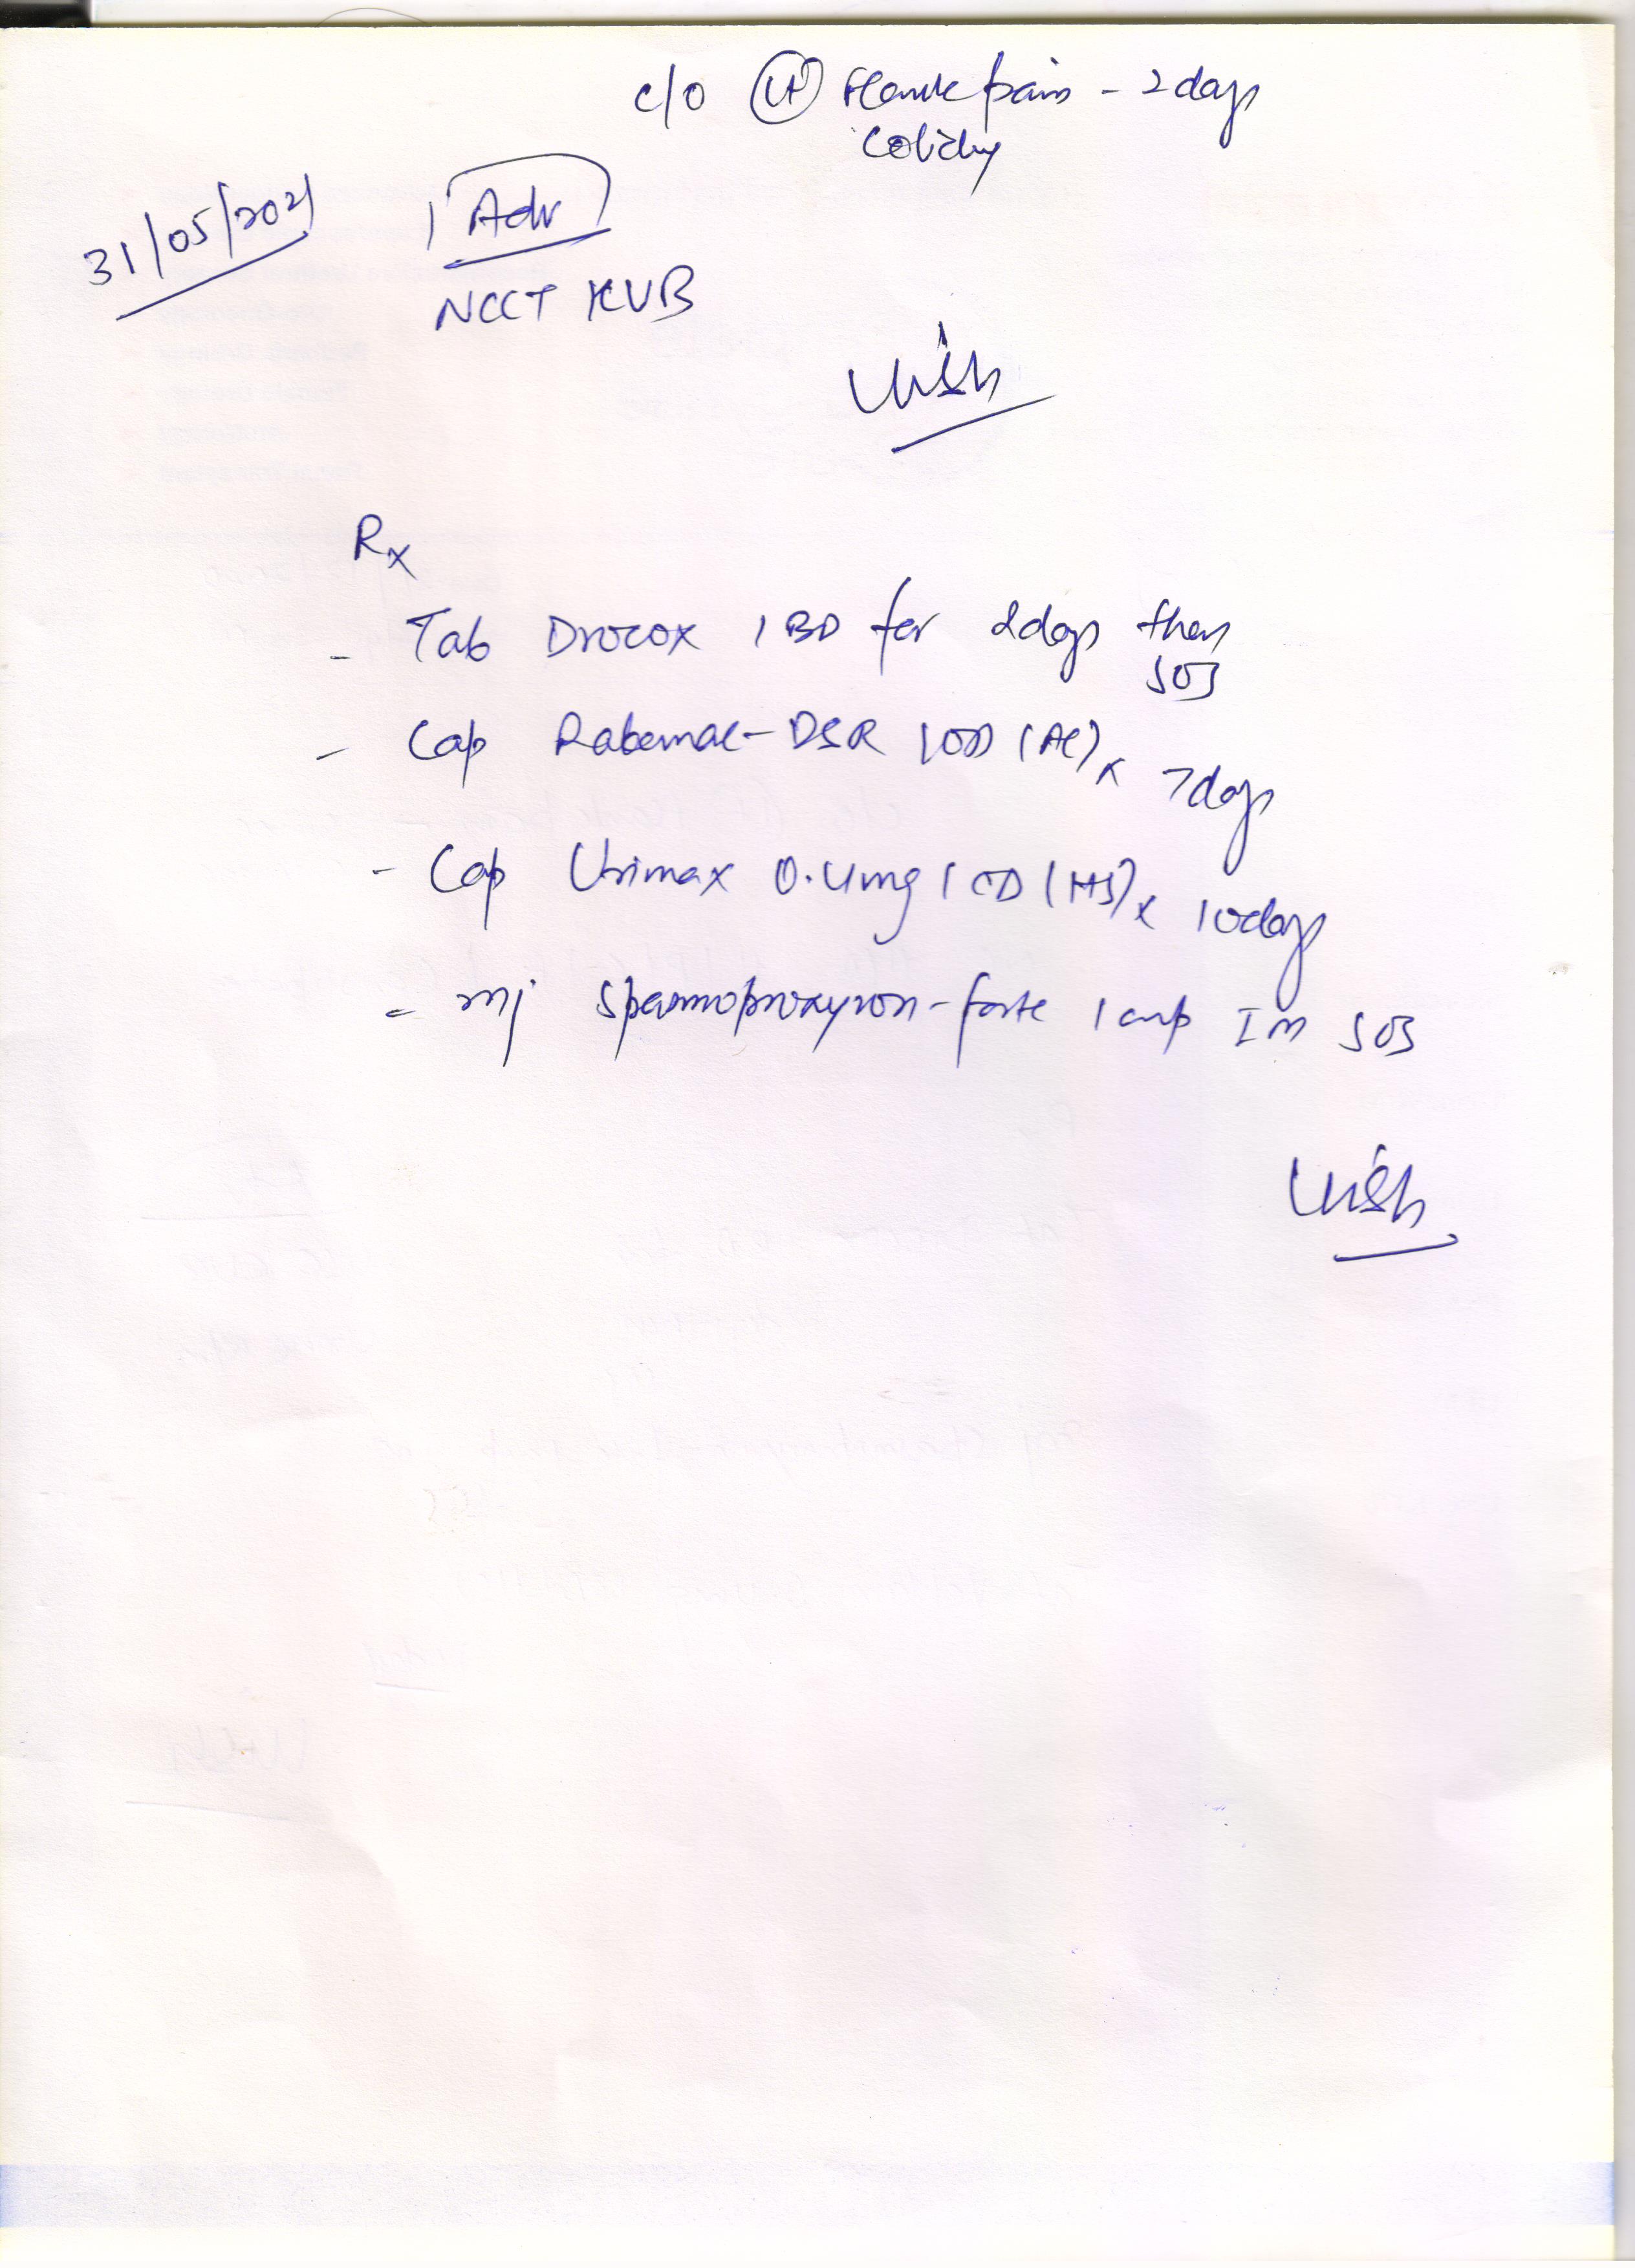 c/o (Lt) Flank pain - 2 days
Colicky
31/05/2021
Adv
NCCT KUB
Rx
- Tab Drocox 1 BD for 2 days then
SOS
- Cap Rabemac-DSR 1 OD (AC) x 7 days
- Cap Urimax 0.4mg 1 OD (HS) x 10 days
- Inj Spasmoproxyvon-forte 1 amp IM SOS